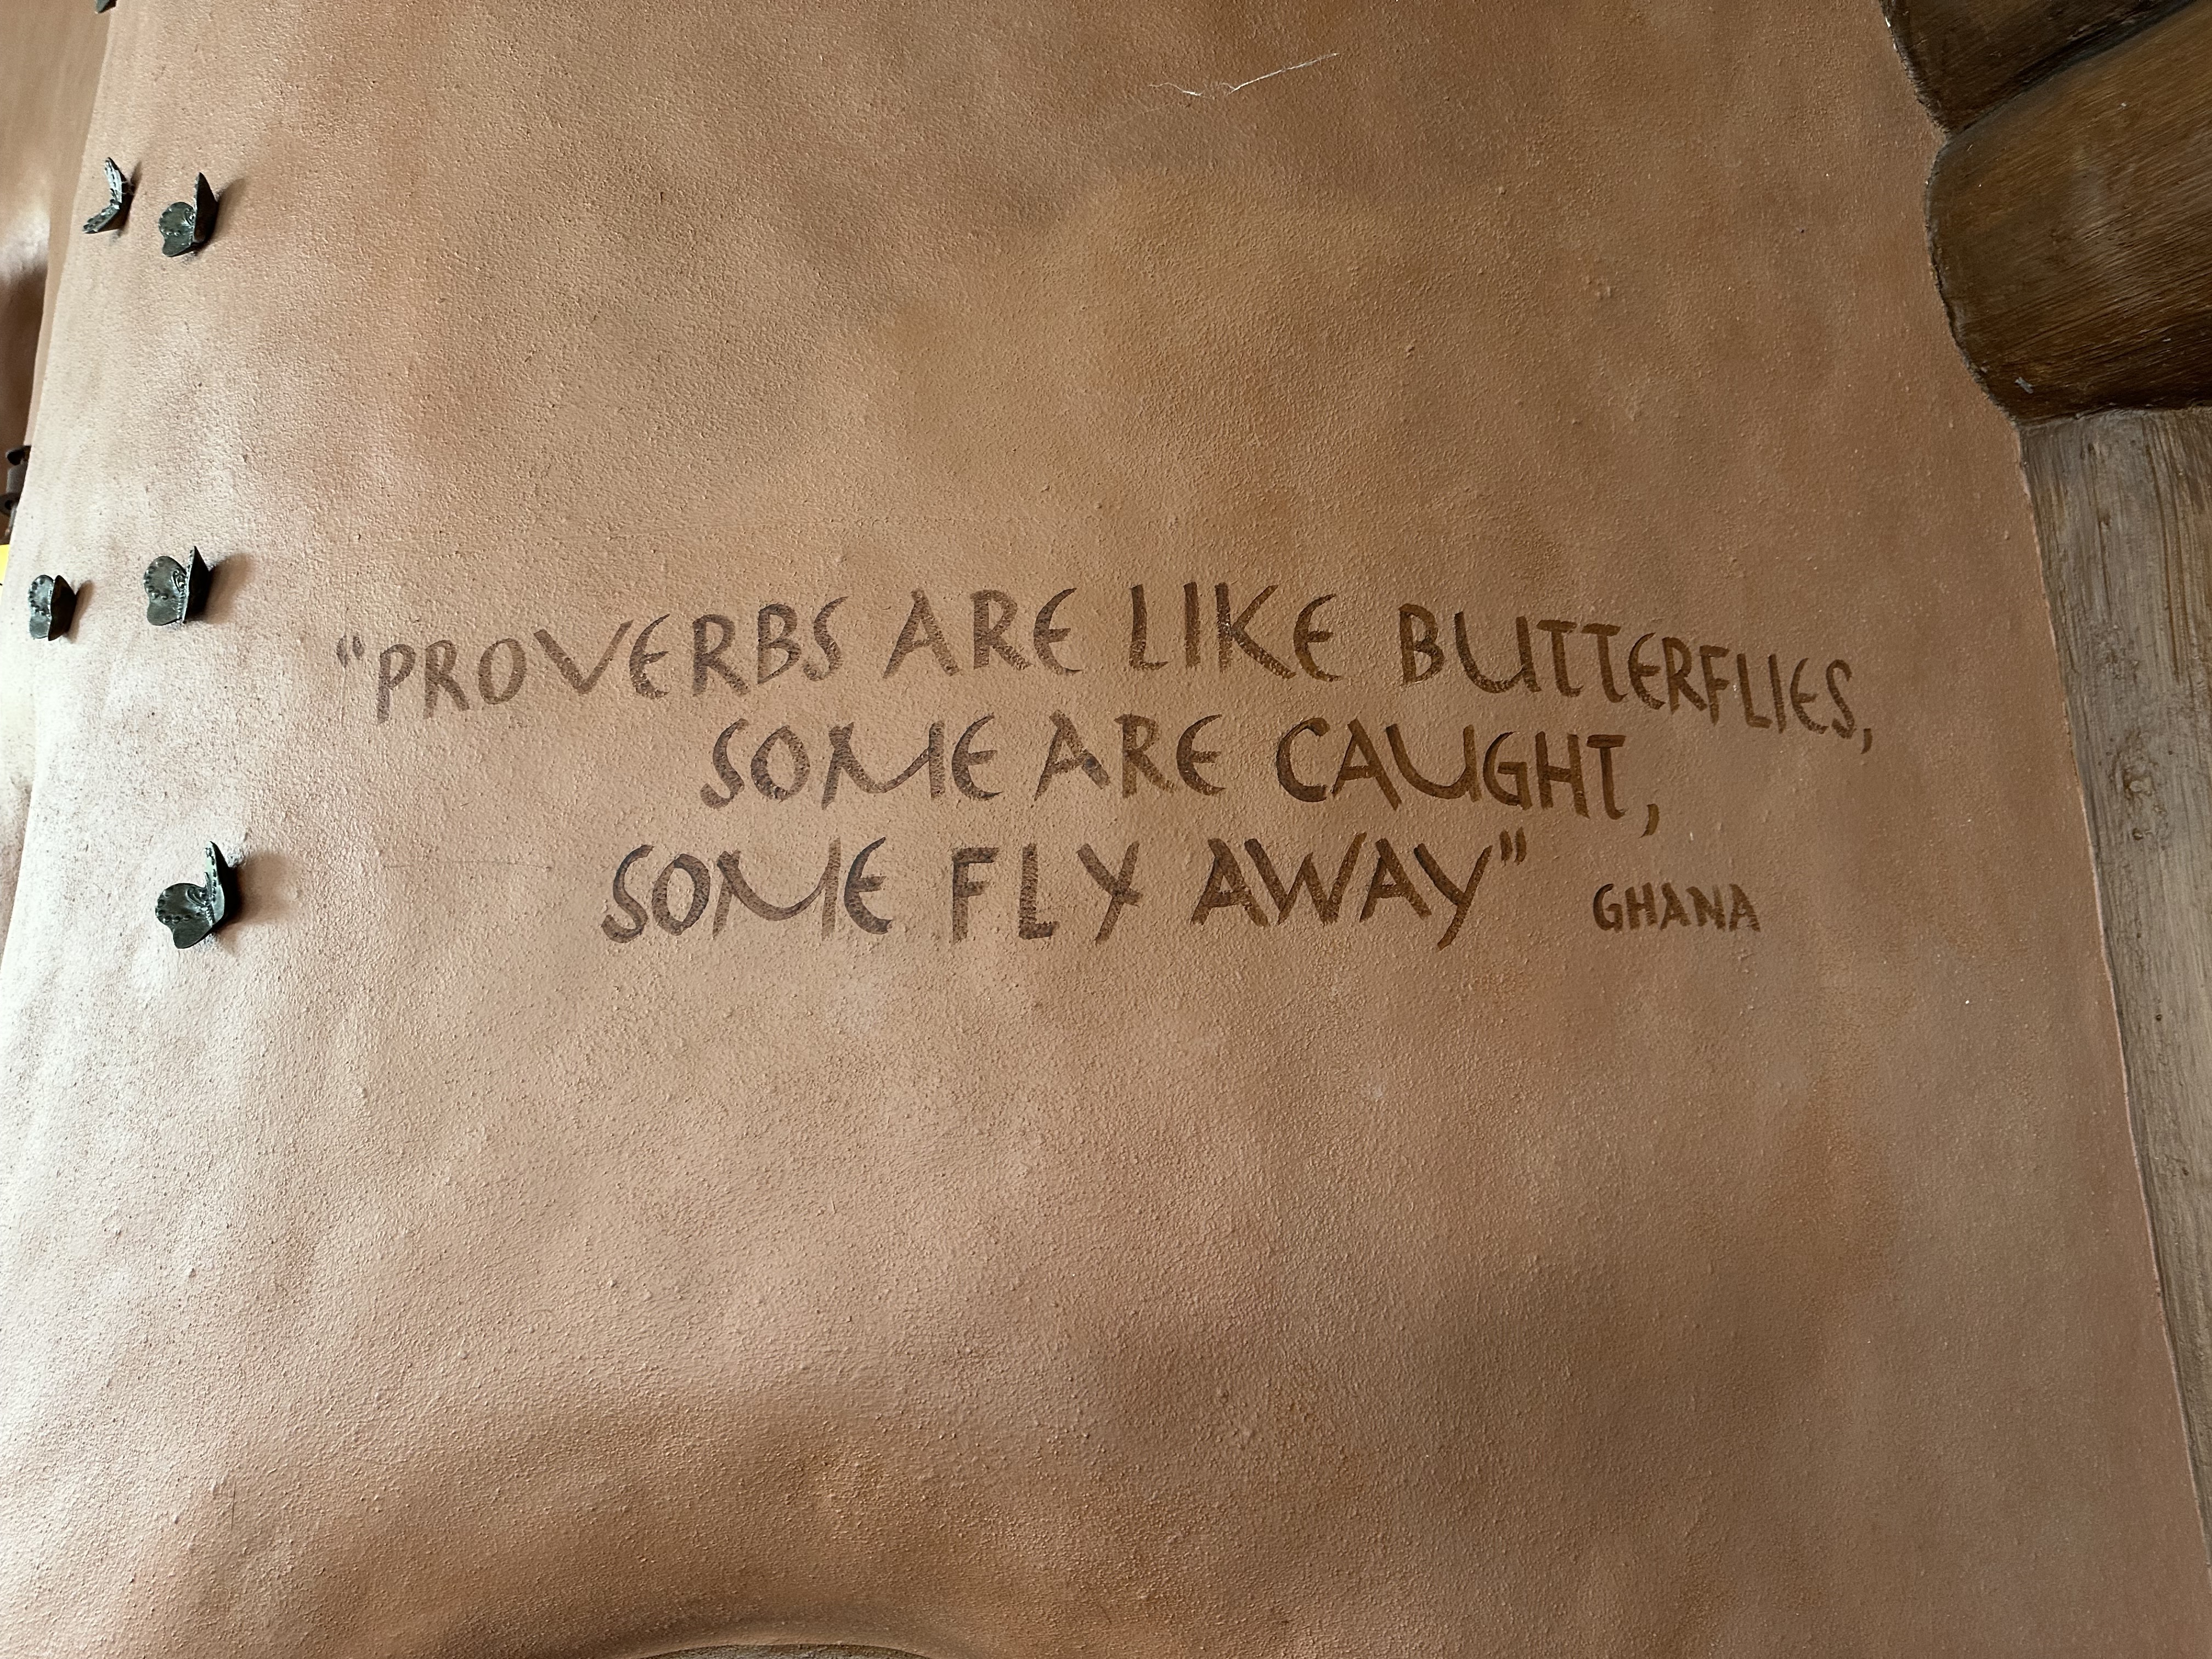 “PROVERBS ARE LIKE BUTTERFLIES,
SOME ARE CAUGHT,
SOME FLY AWAY” GHANA